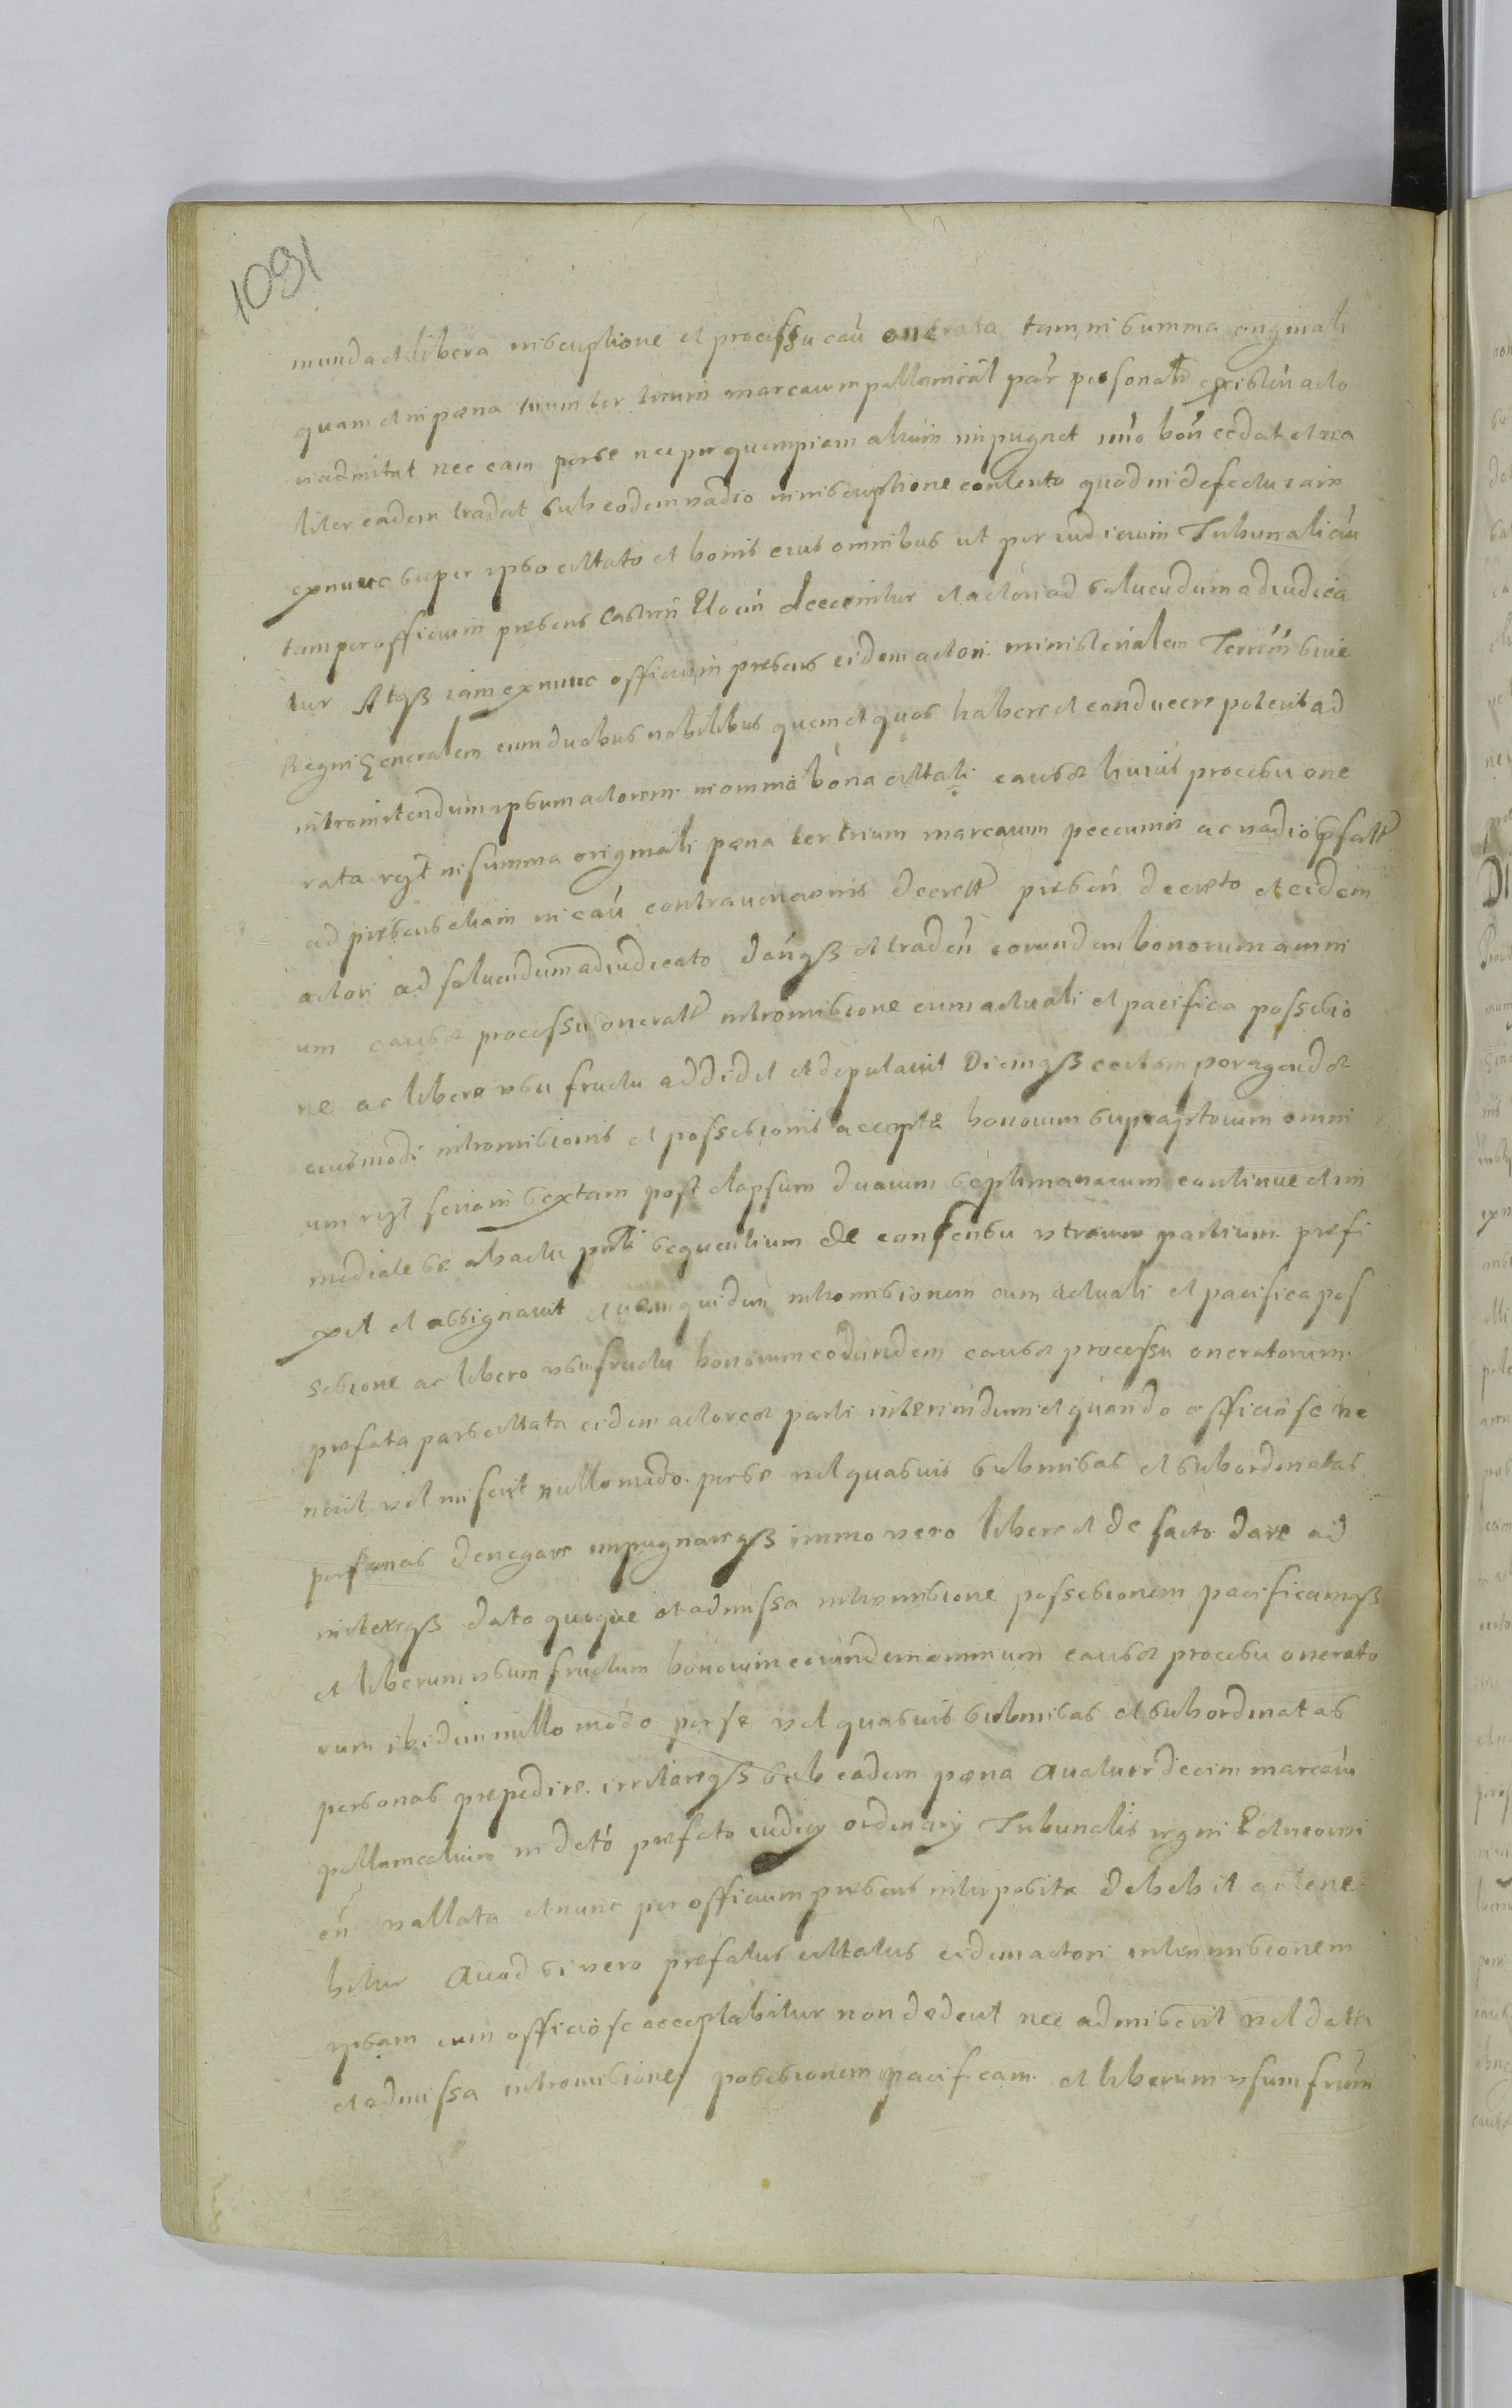 1091
munda et libera inscriptione et processu cau onerata tam in summa originali
quam et in pœna trium ter trium marcarum pollonical par personalr existen acto
ri admitat nec eam per se nec per quempiam alium impugnet imo bon cedat et rea
liter eadem tradat sub eodem vadio in inscriptione contento quod in defectu iam
exnunc super ipso cittato et bonis eius omnibus ut per iudicium Tribunali cau
tam per officium præsens Castrn Zlocun decernitur et actori ad soluendum adiudica
tur Atqß iam exnunc officium præsens eidem actori ministerialem Terrarum siue
Regni Generalem cum duobus nobilibus quem et quos habere et conducere poterit ad
intromittendum ipsum actorem in omnia bona cittati causæ huius processu one
rata rqt in summa originali pœna ter trium marcarum peccuniæ ac vadio præfatt
ad præsens etiam in cau contrauenaonis decrett præsen decreto et eidem
actori ad soluendum adiudicato danqß et traden eorundem bonorum omni
um causæ processu oneratt intromissione cum actuali et pacifica possessio
ne ac libero usu fructu addidit et deputauit Diemqß certam peragendæ
eiusmodi intromissionis et possessionis acceptæ bonorum suprascriptorum omni
um rqt feriam sextam post elapsum duarum septimanarum continue et im
mediate se ab actu prnti sequentium de consensu utrarum partium præfi
xit et assignauit quam quidem intromissionem cum actuali et pacifica pos
sessione ac libero usufructu bonorum eorundem causæ processu oneratorum
præfata pars cittata eidem actoreæ parti interimdum et quando officiose ve
nerit vel miserit nullo modo per se vel quasuis submissas et subordinatas
personas denegare impugnareqß immo vero libere et de facto dare ad
mittereqß dato quoque et admissa intromissione possessionem pacificamqß
et liberum usum fructum bonorum eorundem omnium causæ processu onerato
rum ibidem nullo modo per se vel quasuis submissas et subordinatas
personas præpedire irritareqß sub eadem pœna Quatuordecim marcarum
pollonicalium in deto præfato iudicy ordinary Tribunalis regni
en vallata et nunc per officium præsens interposita debebit ac tene
bitur Quod si vero præfatus cittatus eidem actori intromissionem
ipsam cum officiose acceptabitur non dederit nec admiserit vel data
et admissa intromissione possessionem pacificam et liberum usumfrum